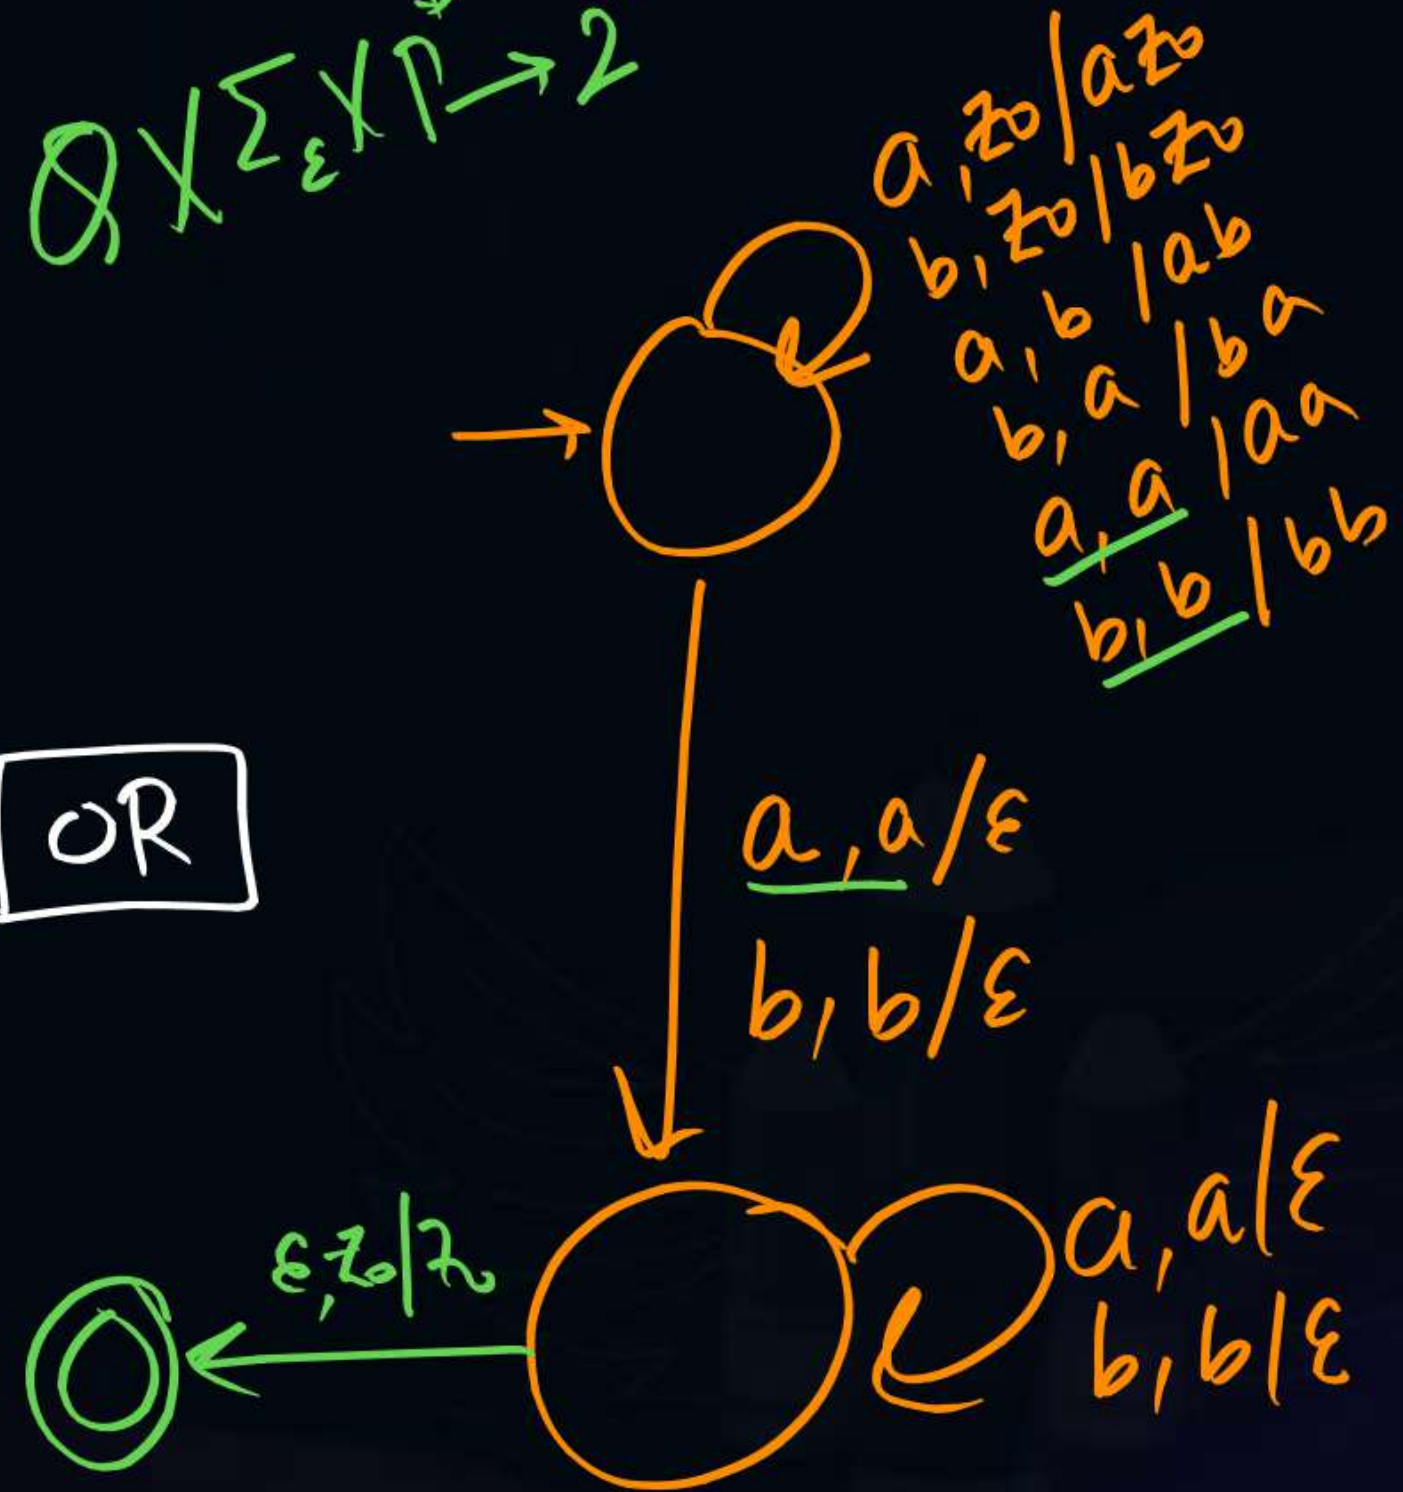 Q X Σε X Γ → 2
a, z₀ | az₀
b, z₀ | bz₀
a, b | ab
b, a | ba
a, a | aa
b, b | bb
OR
a, a/ε
b, b/ε
ε, z₀ | z₀
a, a | ε
b, b | ε